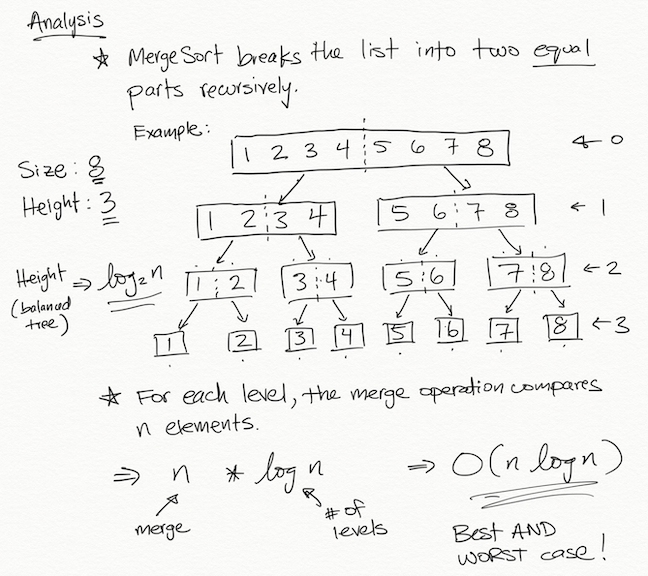 Analysis
* MergeSort breaks the list into two equal
parts recursively.
Example:
1 2 3 4 5 6 7 8 ← 0
Size: 8
Height: 3
1 2 3 4 5 6 7 8 ← 1
Height ⇒ log₂n
(balanced
tree)
1 2 3 4 5 6 7 8 ← 2
1 2 3 4 5 6 7 8 ← 3
* For each level, the merge operation compares
n elements.
⇒ n * log n ⇒ O(n log n)
merge
# of
levels
Best AND
WORST case!